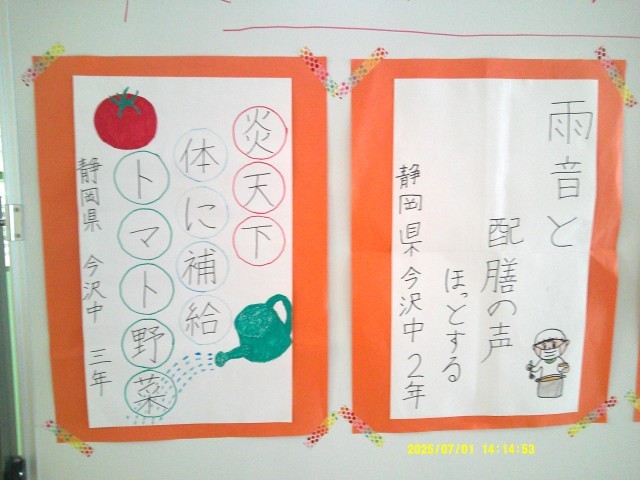 雨音と
配膳の声
ほっとする
静岡県 今沢中2年
炎天下
体に補給
トマト野菜
静岡県 今沢中 三年
2025/07/01 14:14:53